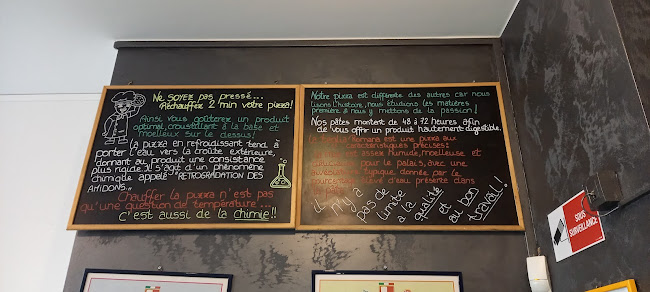 Ne SOYEZ pas pressé...
Réchauffez 2 min votre pizza!
Ainsi vous goûterez un produit
optimal, croustillant à la base et
moelleux sur le dessus!
la pizza en refroidissant tend à
porter l'eau vers la croûte extérieure,
donnant au produit une consistance
plus rigide. Il s'agit d'un phénomène
chimique appelé "RETROGRADATION DES
AMIDONS"..
Chauffer la pizza n'est pas
qu'une question de température...
C'est aussi de la chimie!!
Notre pizza est différente des autres car nous
lisons l'histoire, nous étudions les matières
première & nous y mettons de la passion!
Nos pâtes montent de 48 à 72 heures afin
de vous offrir un produit hautement digestible.
est une pizza aux
caractéristiques précises:
est assez humide, moelleuse, et
pour le palais, avec une
typique donnée par le
élevé d'eau présente dans
il n'y a
pas de
limite
a la
qualité
et
au bon
travail!
SOUS
SURVEILLANCE